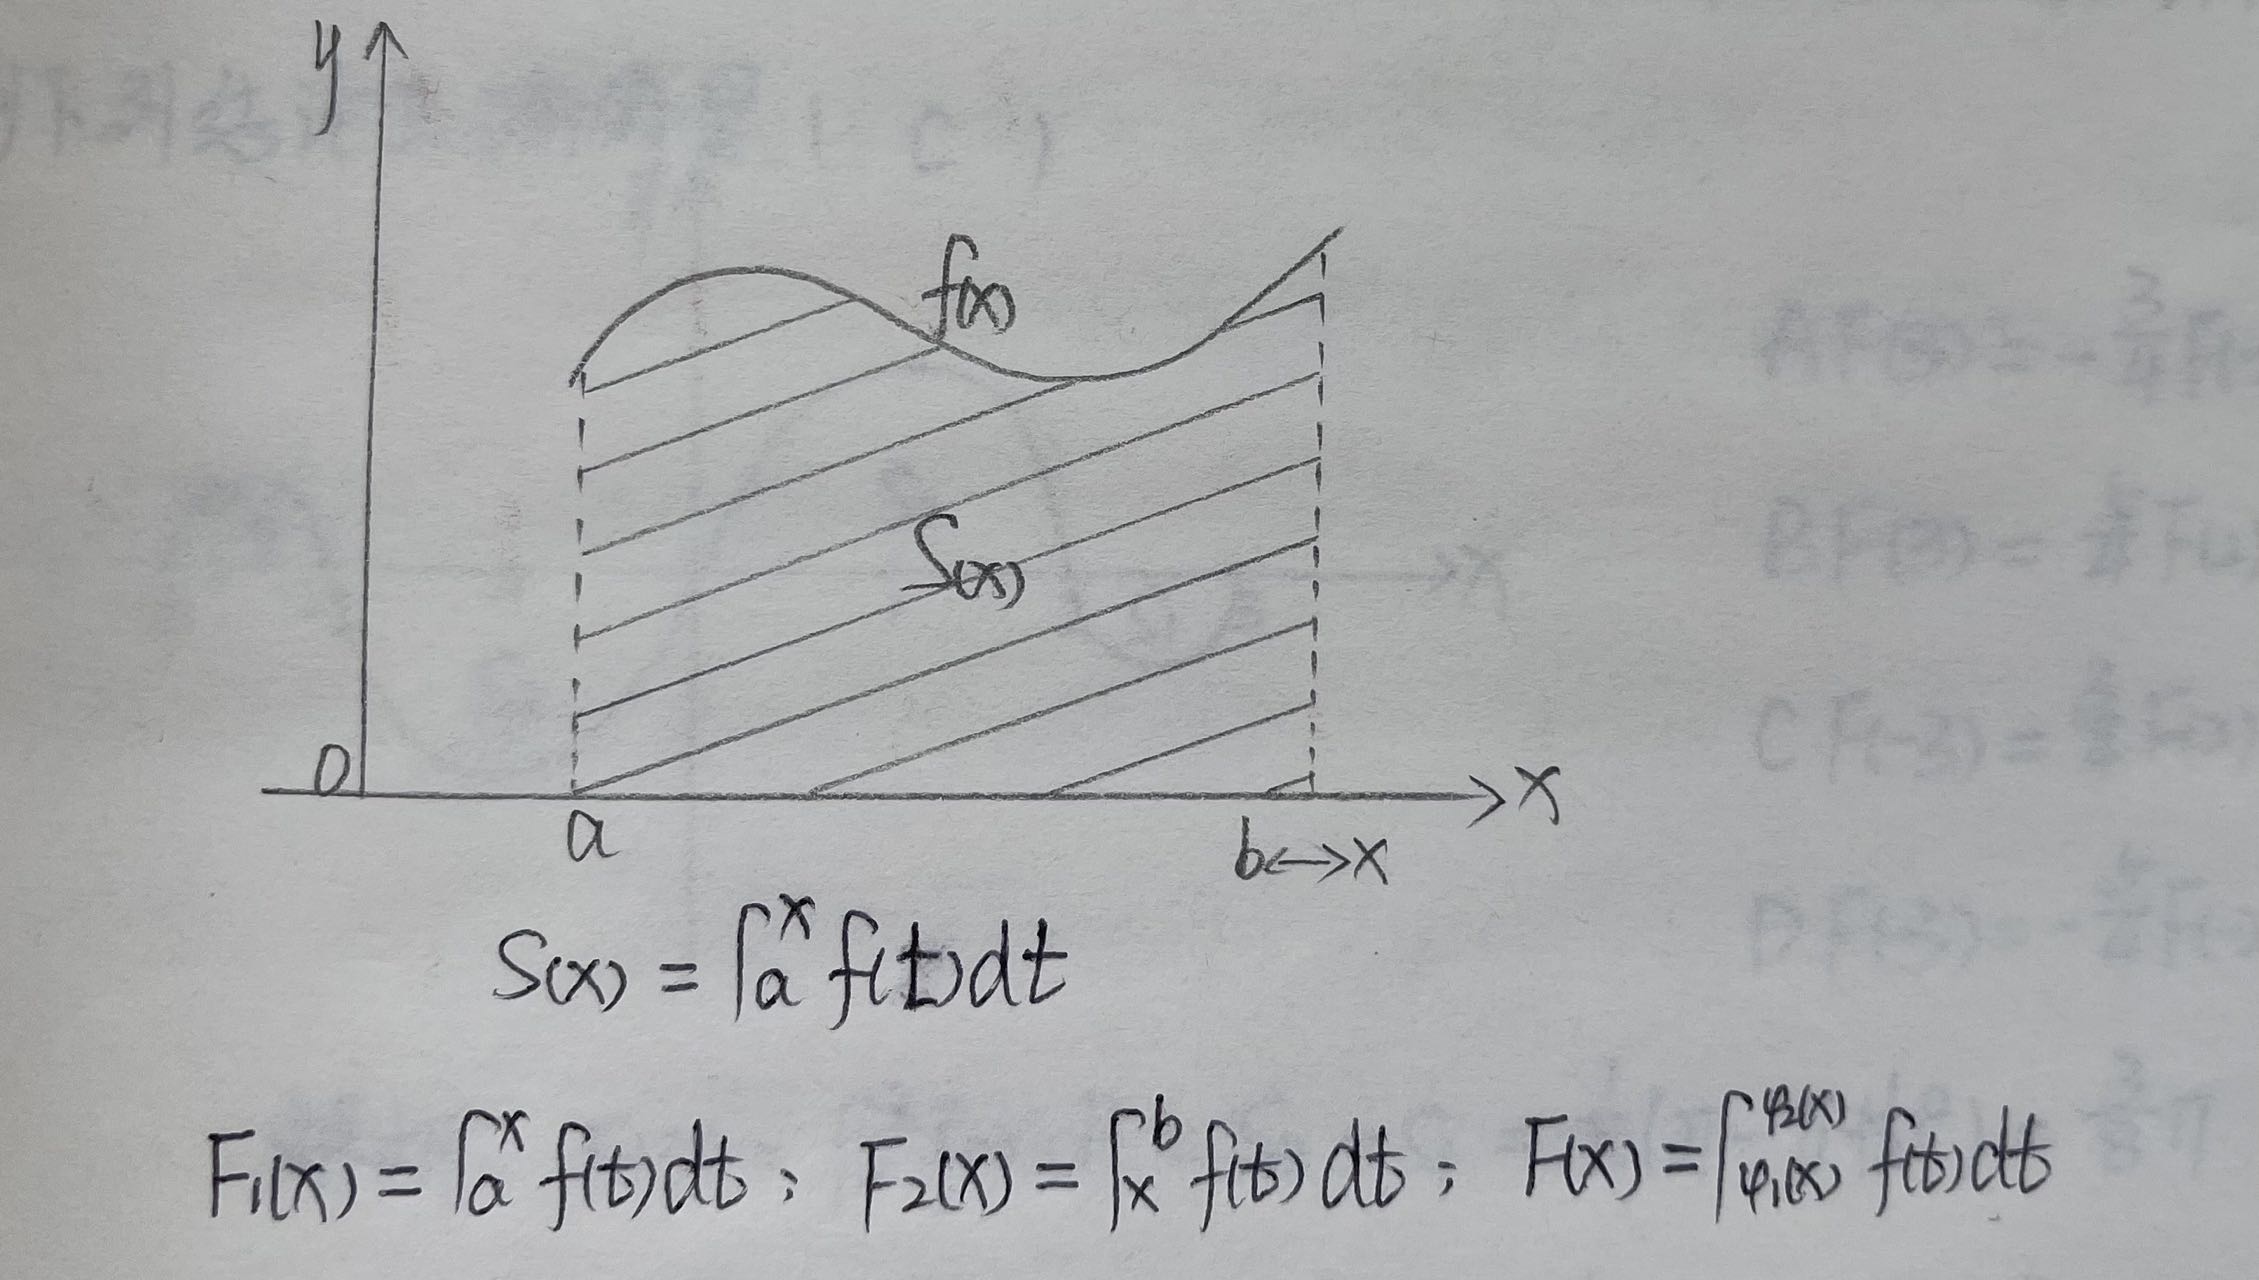 y
f(x)
S(x)
0
x
a
b↔x
S(x) = ∫ₐˣ f(t)dt
F₁(x) = ∫ₐˣ f(t)dt; F₂(x) = ∫ₓᵇ f(t)dt; F(x) = ∫_{φ₁(x)}^{φ₂(x)} f(t)dt